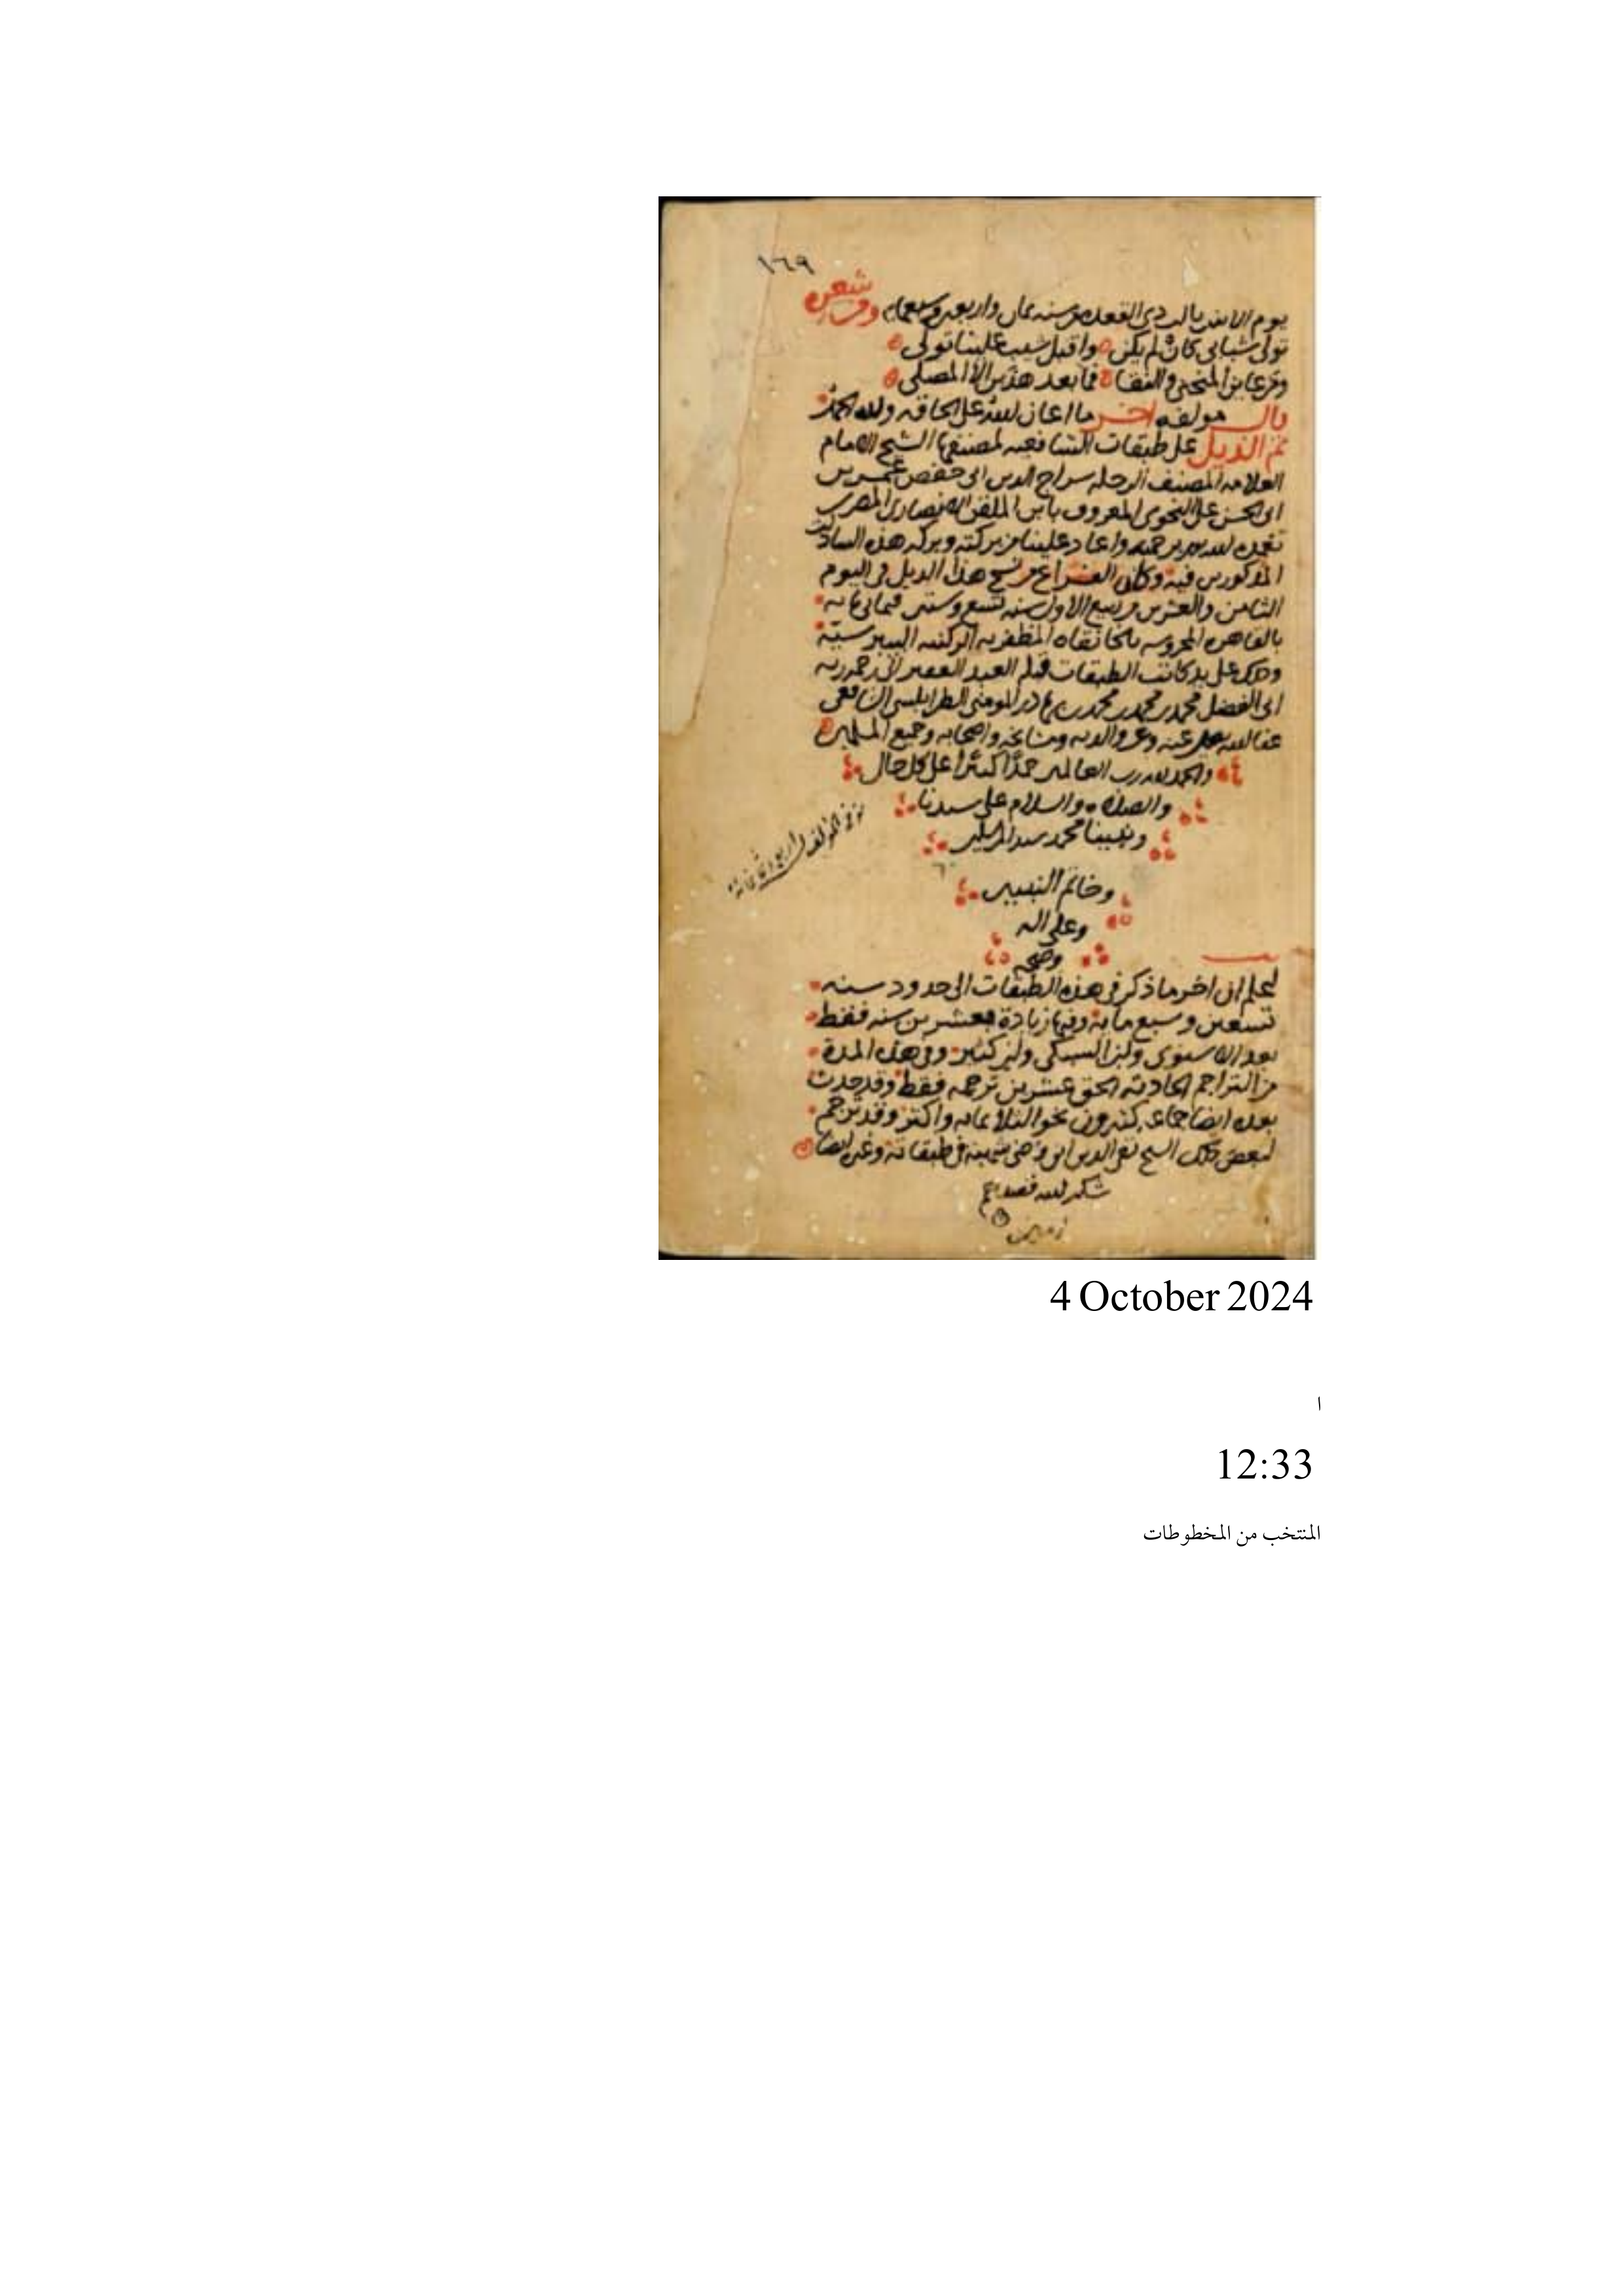 ١٦٩
يوم الاثنين ثالث ذي القعده من سنه ثمان واربعين وسبعمايه ومن شعره
تولى شبابي كان لم يكن واقبل شيب علينا تولى
ومن عاين المنحنى والنقا فما بعد هذين الا المصلى
قال مولفه اخر ما اعان الله على الحاقه ولله الحمد
تم الذيل على طبقات الشافعيه لمصنفها الشيخ الامام
العلامه المصنف الرحله سراج الدين ابي حفص عمر بن
ابي الحسن علي النحوي المعروف بابن الملقن الانصاري المصري
تغمده الله برحمته واعاد علينا من بركته وبركه هذه السادات
المذكورين فيه وكان الفراغ من نسخ هذا الذيل في اليوم
الثامن والعشرين من ربيع الاول سنه تسع وستين وثماني مايه
بالقاهره المحروسه بالخانقاه المظفريه الركنيه البيبرسيه
وذلك على يد كاتب الطبقات قبله العبد الفقير الى رحمه ربه
ابي الفضل محمد بن محمد بن محمد بن بهادر المومني الطرابلسي الشافعي
عفا الله تعالى عنه وعن والديه ومشايخه واصحابه وجميع المسلمين
والحمد لله رب العالمين حمدا كثيرا على كل حال
والصلاه والسلام على سيدنا
ونبينا محمد سيد المرسلين
توفي المولف في اربع وثمانمائة
وخاتم النبيين
وعلى اله
وصحبه
ليعلم ان اخر ما ذكر في هذه الطبقات الى حدود سنه
تسعين وسبع مايه وفيها زيادة عشرين سنه فقط
بعد الاسنوي وابن السبكي وابن كثير وفي هذه المدة
من التراجم الحادثه الحق عشرين ترجمه فقط وقد حدث
بعده ايضا جماعه كثيرون نحو الثلاثمايه واكثر وقد ترجم
لبعض ذلك الشيخ تقي الدين ابن قاضي شهبه في طبقاته وغيره ايضا
شكر الله قصدهم
امين
4 October 2024
ا
12:33
المنتخب من المخطوطات